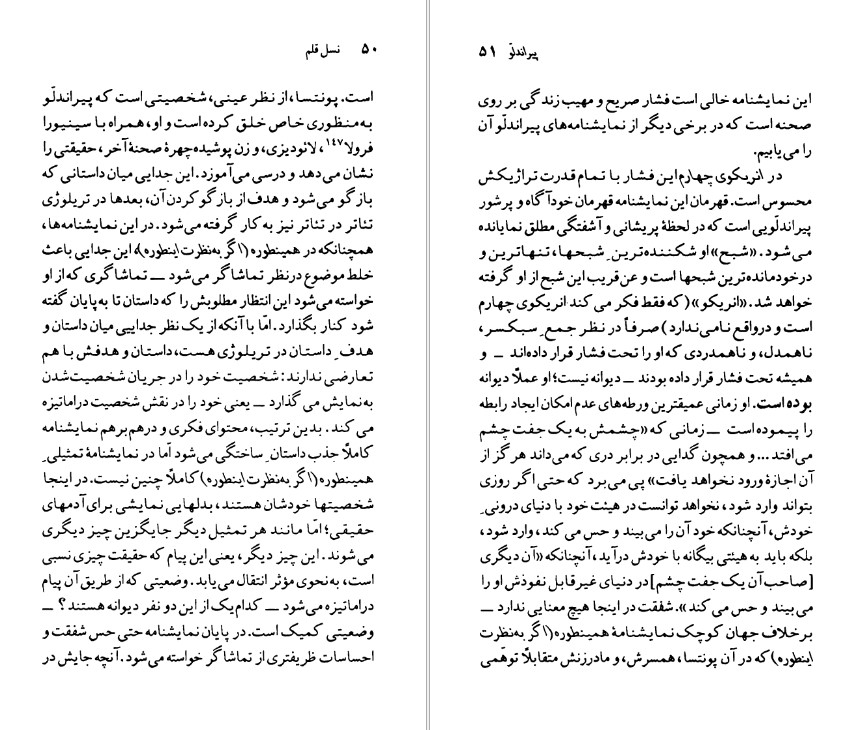 ۵۰ نسل قلم
است. پونتسا، از نظر عینی، شخصیتی است که پیراندلّو
به منظوری خاص خلق کرده است و او، همراه با سینیورا
فرولا۱۴۷، لائودیزی، و زن پوشیده چهرهٔ صحنهٔ آخر، حقیقتی را
نشان می‌دهد و درسی می‌آموزد. این جدایی میان داستانی که
بازگو می‌شود و هدف از بازگو کردن آن، بعدها در تریلوژی
تئاتر در تئاتر نیز به کار گرفته می‌شود. در این نمایشنامه‌ها،
همچنانکه در همینطوره (اگر به‌نظرت اینطوره)، این جدایی باعث
خلط موضوع درنظر تماشاگر می‌شود — تماشاگری که از او
خواسته می‌شود این انتظار مطلوبش را که داستان تا به‌پایان گفته
شود کنار بگذارد. امّا با آنکه از یک نظر جدایی میان داستان و
هدفِ داستان در تریلوژی هست، داستان و هدفش با هم
تعارضی ندارند: شخصیت خود را در جریان شخصیت‌شدن
به‌نمایش می‌گذارد — یعنی خود را در نقش شخصیت دراماتیزه
می‌کند. بدین ترتیب، محتوای فکری و درهم‌برهم نمایشنامه
کاملاً جذب داستانِ ساختگی می‌شود امّا در نمایشنامهٔ تمثیلیِ
همینطوره (اگر به‌نظرت اینطوره) کاملاً چنین نیست. در اینجا
شخصیتها خودشان هستند، بدلهایی نمایشی برای آدمهای
حقیقی؛ امّا مانند هر تمثیل دیگر جایگزین چیز دیگری
می‌شوند. این چیز دیگر، یعنی این پیام که حقیقت چیزی نسبی
است، به‌نحوی مؤثر انتقال می‌یابد. وضعیتی که از طریق آن پیام
دراماتیزه می‌شود — کدام‌یک از این دو نفر دیوانه هستند؟ —
وضعیتی کمیک است. در پایان نمایشنامه حتی حس شفقت و
احساسات ظریفتری از تماشاگر خواسته می‌شود. آنچه جایش در
پیراندلّو ۵۱
این نمایشنامه خالی است فشار صریح و مهیب زندگی بر روی
صحنه است که در برخی دیگر از نمایشنامه‌های پیراندلّو آن
را می‌یابیم.
در انریکوی چهارم این فشار با تمام قدرت تراژیکش
محسوس است. قهرمان این نمایشنامه قهرمان خودآگاه و پرشور
پیراندلّویی است که در لحظهٔ پریشانی و آشفتگی مطلق نمایانده
می‌شود. «شبح» او شکننده‌ترینِ شبحها، تنهاترین و
درخودمانده‌ترین شبحها است و عن‌قریب این شبح از او گرفته
خواهد شد. «انریکو» (که فقط فکر می‌کند انریکوی چهارم
است و درواقع نامی ندارد) صرفاً در نظر جمعِ سبکسر،
ناهمدل، و ناهمدردی که او را تحت فشار قرار داده‌اند — و
همیشه تحت فشار قرار داده بودند — دیوانه نیست؛ او عملاً دیوانه
بوده است. او زمانی عمیقترین ورطه‌های عدم امکان ایجاد رابطه
را پیموده است — زمانی که «چشمش به یک جفت چشم
می‌افتد... و همچون گدایی در برابر دری که می‌داند هرگز از
آن اجازهٔ ورود نخواهد یافت» پی می‌برد که حتی اگر روزی
بتواند وارد شود، نخواهد توانست در هیئت خود با دنیای درونیِ
خودش، آنچنانکه خود آن را می‌بیند و حس می‌کند، وارد شود،
بلکه باید به هیئتی بیگانه با خودش درآید، آنچنانکه «آن دیگری
[صاحب آن یک جفت چشم] در دنیای غیرقابل نفوذش او را
می‌بیند و حس می‌کند». شفقت در اینجا هیچ معنایی ندارد —
برخلاف جهان کوچک نمایشنامهٔ همینطوره (اگر به‌نظرت
اینطوره) که در آن پونتسا، همسرش، و مادرزنش متقابلاً توهّمی